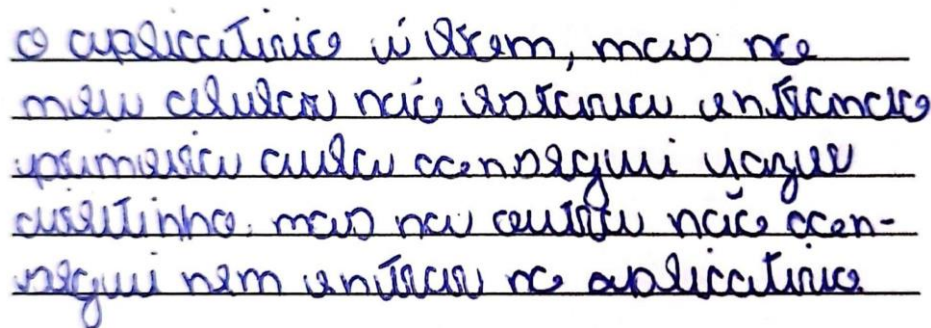 o aplicativo é bom, mas no
meu celular não estava entrando
primeira aula consegui fazer
certinho. mas na outra não con-
segui nem entrar no aplicativo.